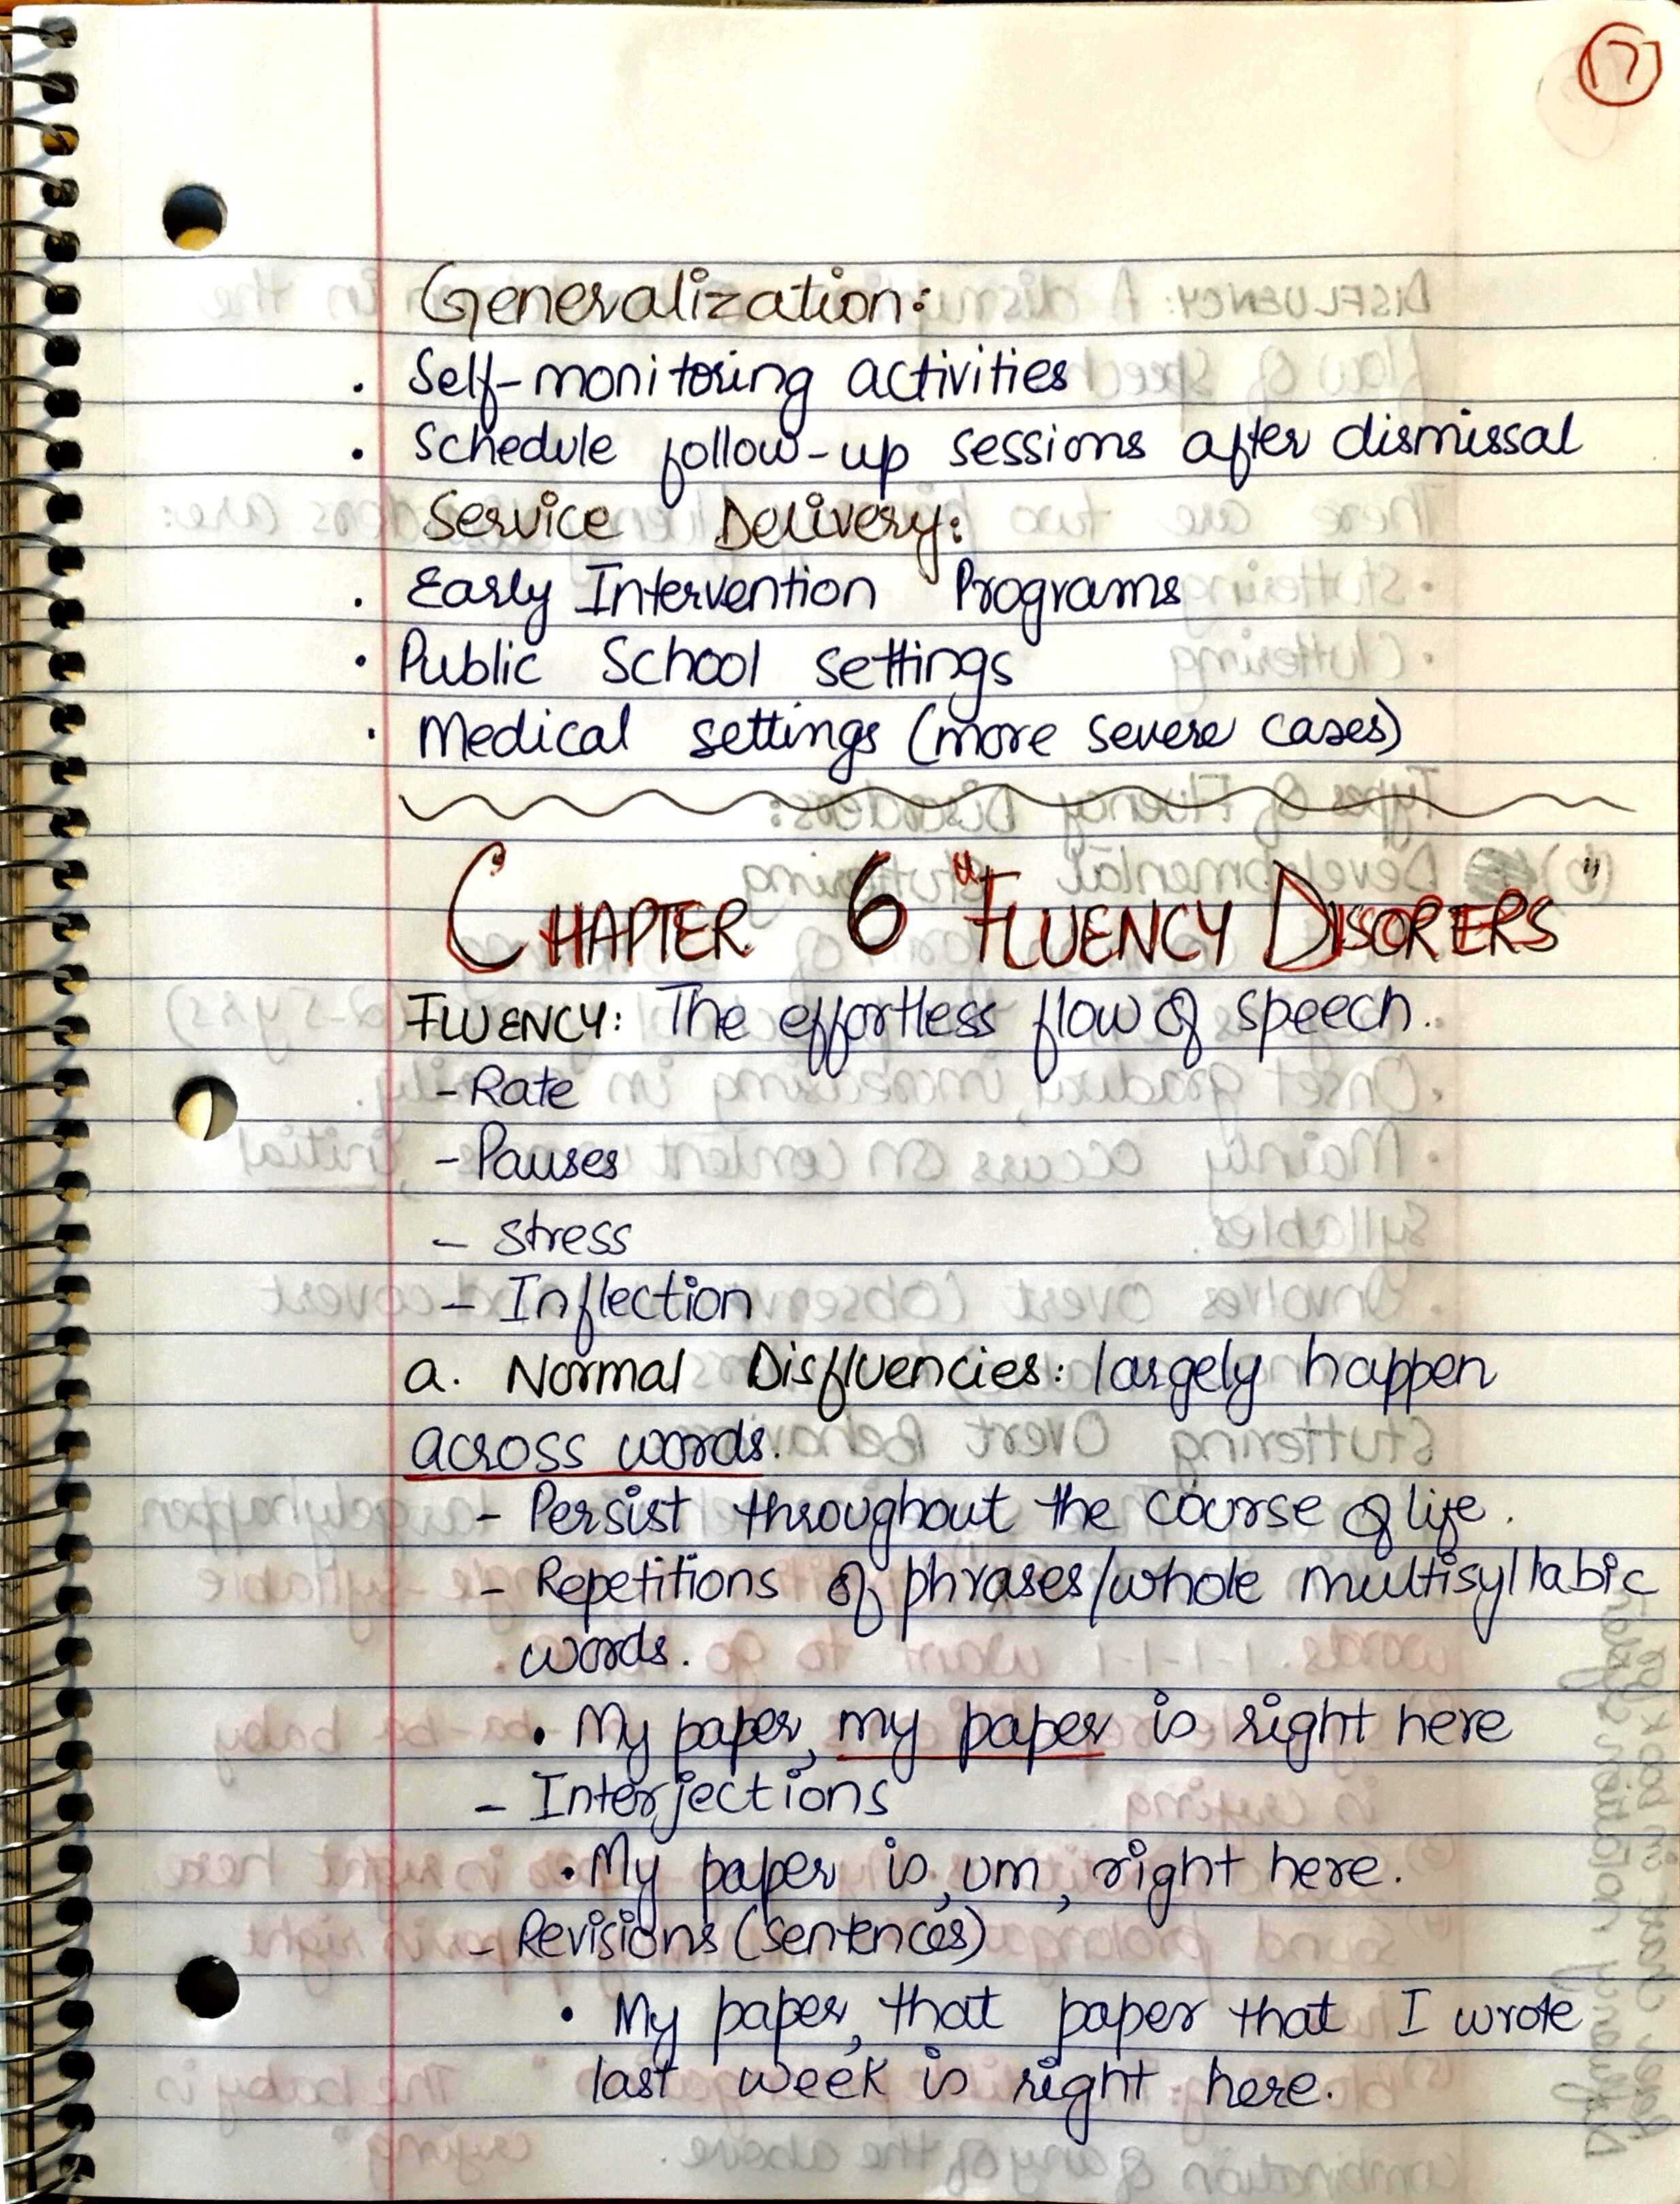 17
Generalization:
. Self-monitoring activities
. Schedule follow-up sessions after dismissal
Service Delivery:
. Early Intervention Programs
. Public School settings
. Medical settings (more severe cases)
CHAPTER 6 "FLUENCY DISORERS"
FLUENCY: The effortless flow of speech.
- Rate
- Pauses
- Stress
- Inflection
a. Normal Disfluencies: largely happen
across words.
- Persist throughout the course of life.
- Repetitions of phrases/whole multisyllabic
words.
• My paper, my paper is right here
- Interjections
• My paper is, um, right here.
- Revisions (sentences)
• My paper, that paper that I wrote
last week is right here.